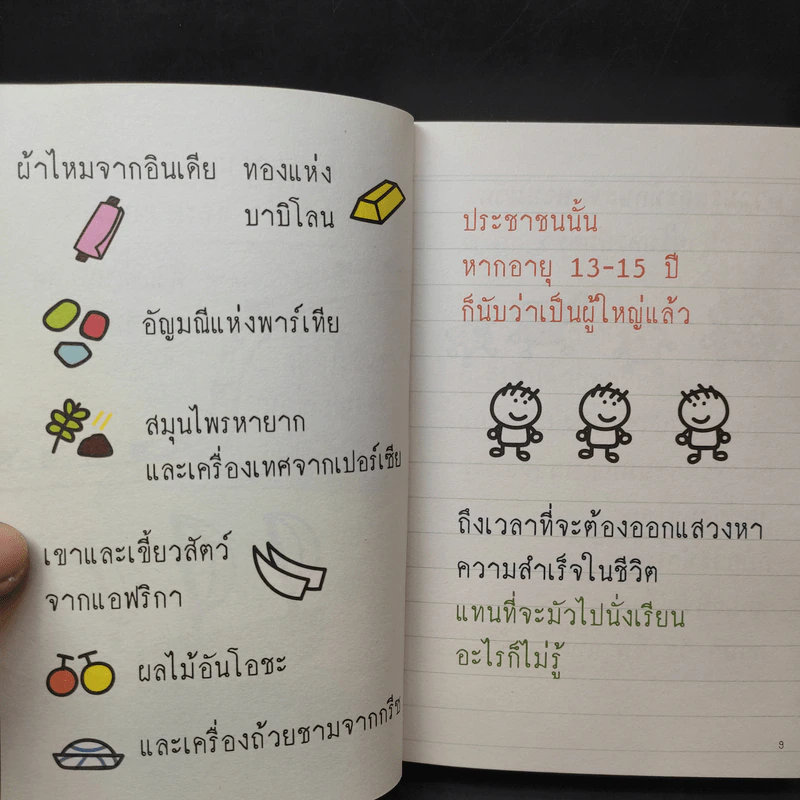 ผ้าไหมจากอินเดีย
ทองแห่ง
บาบิโลน
อัญมณีแห่งพาร์เทีย
สมุนไพรหายาก
และเครื่องเทศจากเปอร์เซีย
เขาและเขี้ยวสัตว์
จากแอฟริกา
ผลไม้อันโอชะ
และเครื่องถ้วยชามจากกรีซ
ประชาชนนั้น
หากอายุ 13-15 ปี
ก็นับว่าเป็นผู้ใหญ่แล้ว
ถึงเวลาที่จะต้องออกแสวงหา
ความสำเร็จในชีวิต
แทนที่จะมัวไปนั่งเรียน
อะไรก็ไม่รู้
9